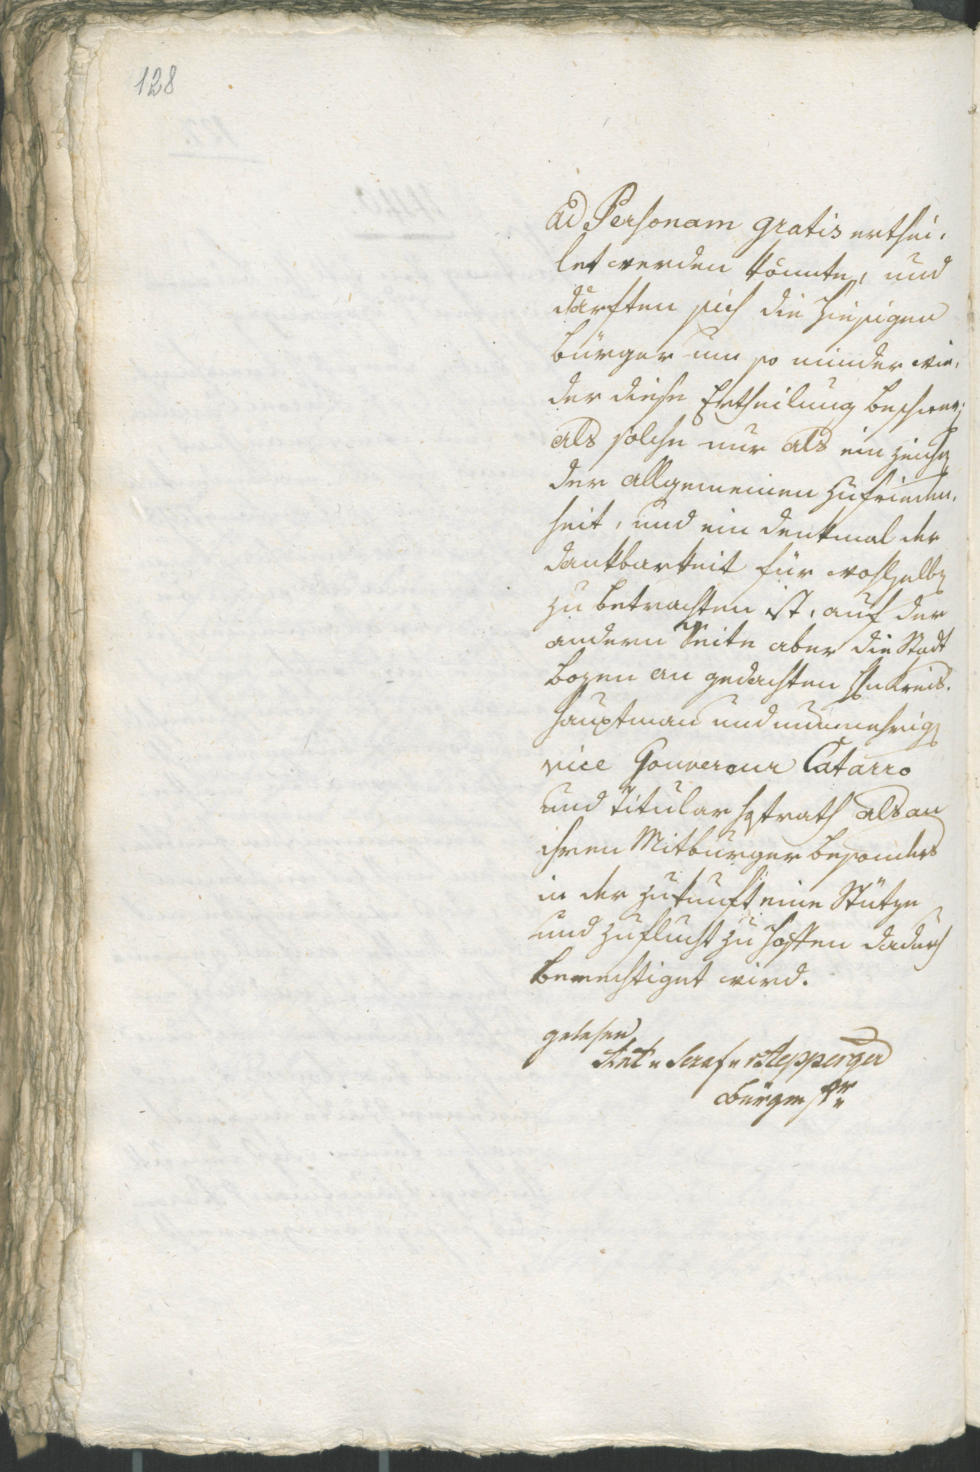 128
ad Personam gratis erthei-
let werden könnte, und
därften sich die hiesigen
bürger um so minder wie-
der diese Ertheilung beschweren,
als solche nur als ein Zeichen
der allgemeinen Zufrieden-
heit, und ein Denkmal der
Dankbarkeit für wohlselben
zu betrachten ist, auf der
andern Seite aber die Stadt
Bozen an gedachten Hn Kreis-
hauptman und nunmehrigen
vice Gouverneur Catarro
und Titular Hofrath als an
ihren Mitbürger besonders
in der Zukunft eine Stütze
und Zuflucht zu hoffen dadurch
berechtiget wird.
gelesen
Ant. v.
Bürgermstr.